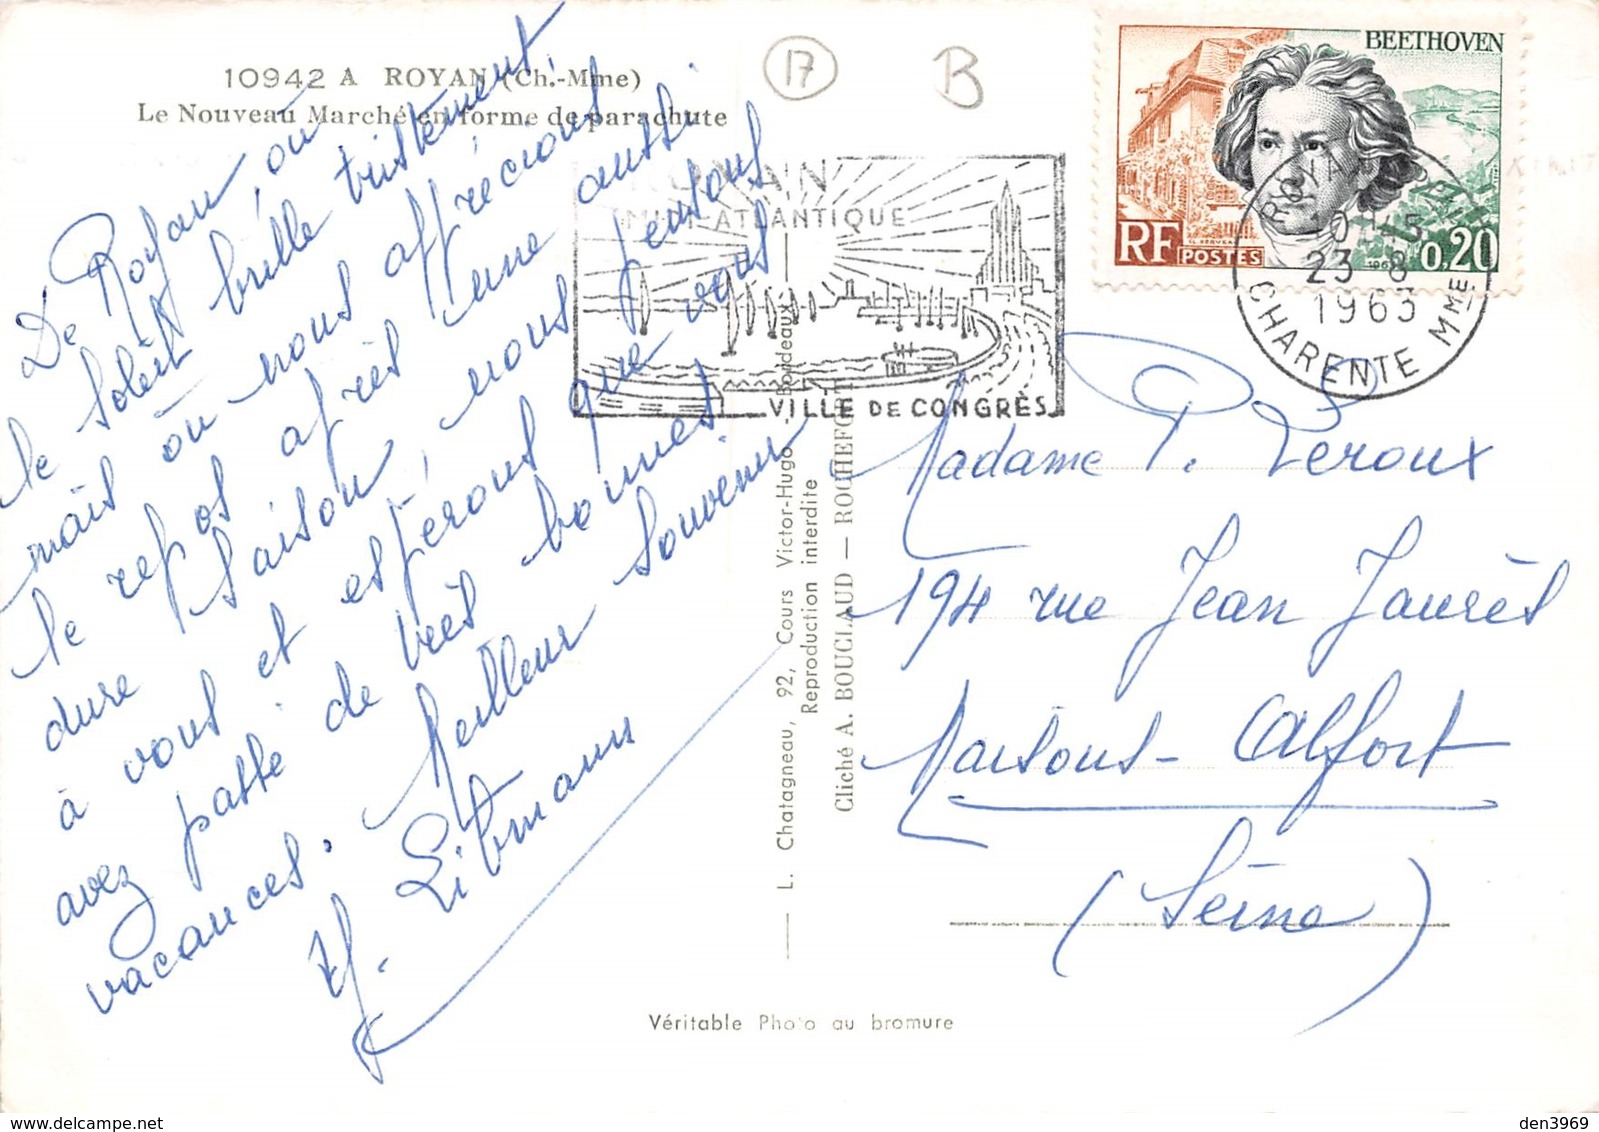 10942 A ROYAN (Ch.-Mme)
Le Nouveau Marché en forme de parachute
De Royan où
le soleil brille tristement,
mais où nous apprécions
le repos après une aussi
dure saison, nous pensons
à vous et espérons que vous
avez passé de très bonnes
vacances. Meilleur souvenir
Litmann
17
B
ROYAN
ATLANTIQUE
VILLE DE CONGRÈS
BEETHOVEN
RF POSTES 0,20
ROYAN
23 8
1963
CHARENTE MME
L. Chatagneau, 92, Cours Victor-Hugo - Bordeaux
Reproduction interdite
Cliché A. BOUCLAUD — ROCHEFORT
Madame P. Leroux
194 rue Jean Jaurès
Maisons-Alfort
(Seine)
Véritable Photo au bromure
den3969